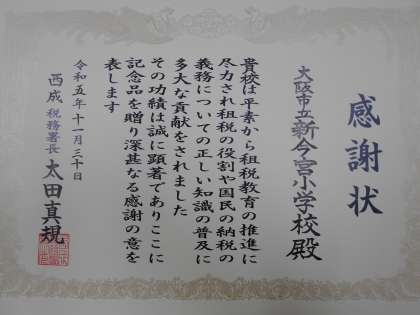 感謝状
大阪市立新今宮小学校殿
貴校は平素から租税教育の推進に
尽力され租税の役割や国民の納税の
義務についての正しい知識の普及に
多大な貢献をされました
その功績は誠に顕著でありここに
記念品を贈り深甚なる感謝の意を
表します
令和五年十一月三十日
西成税務署長 太田真規